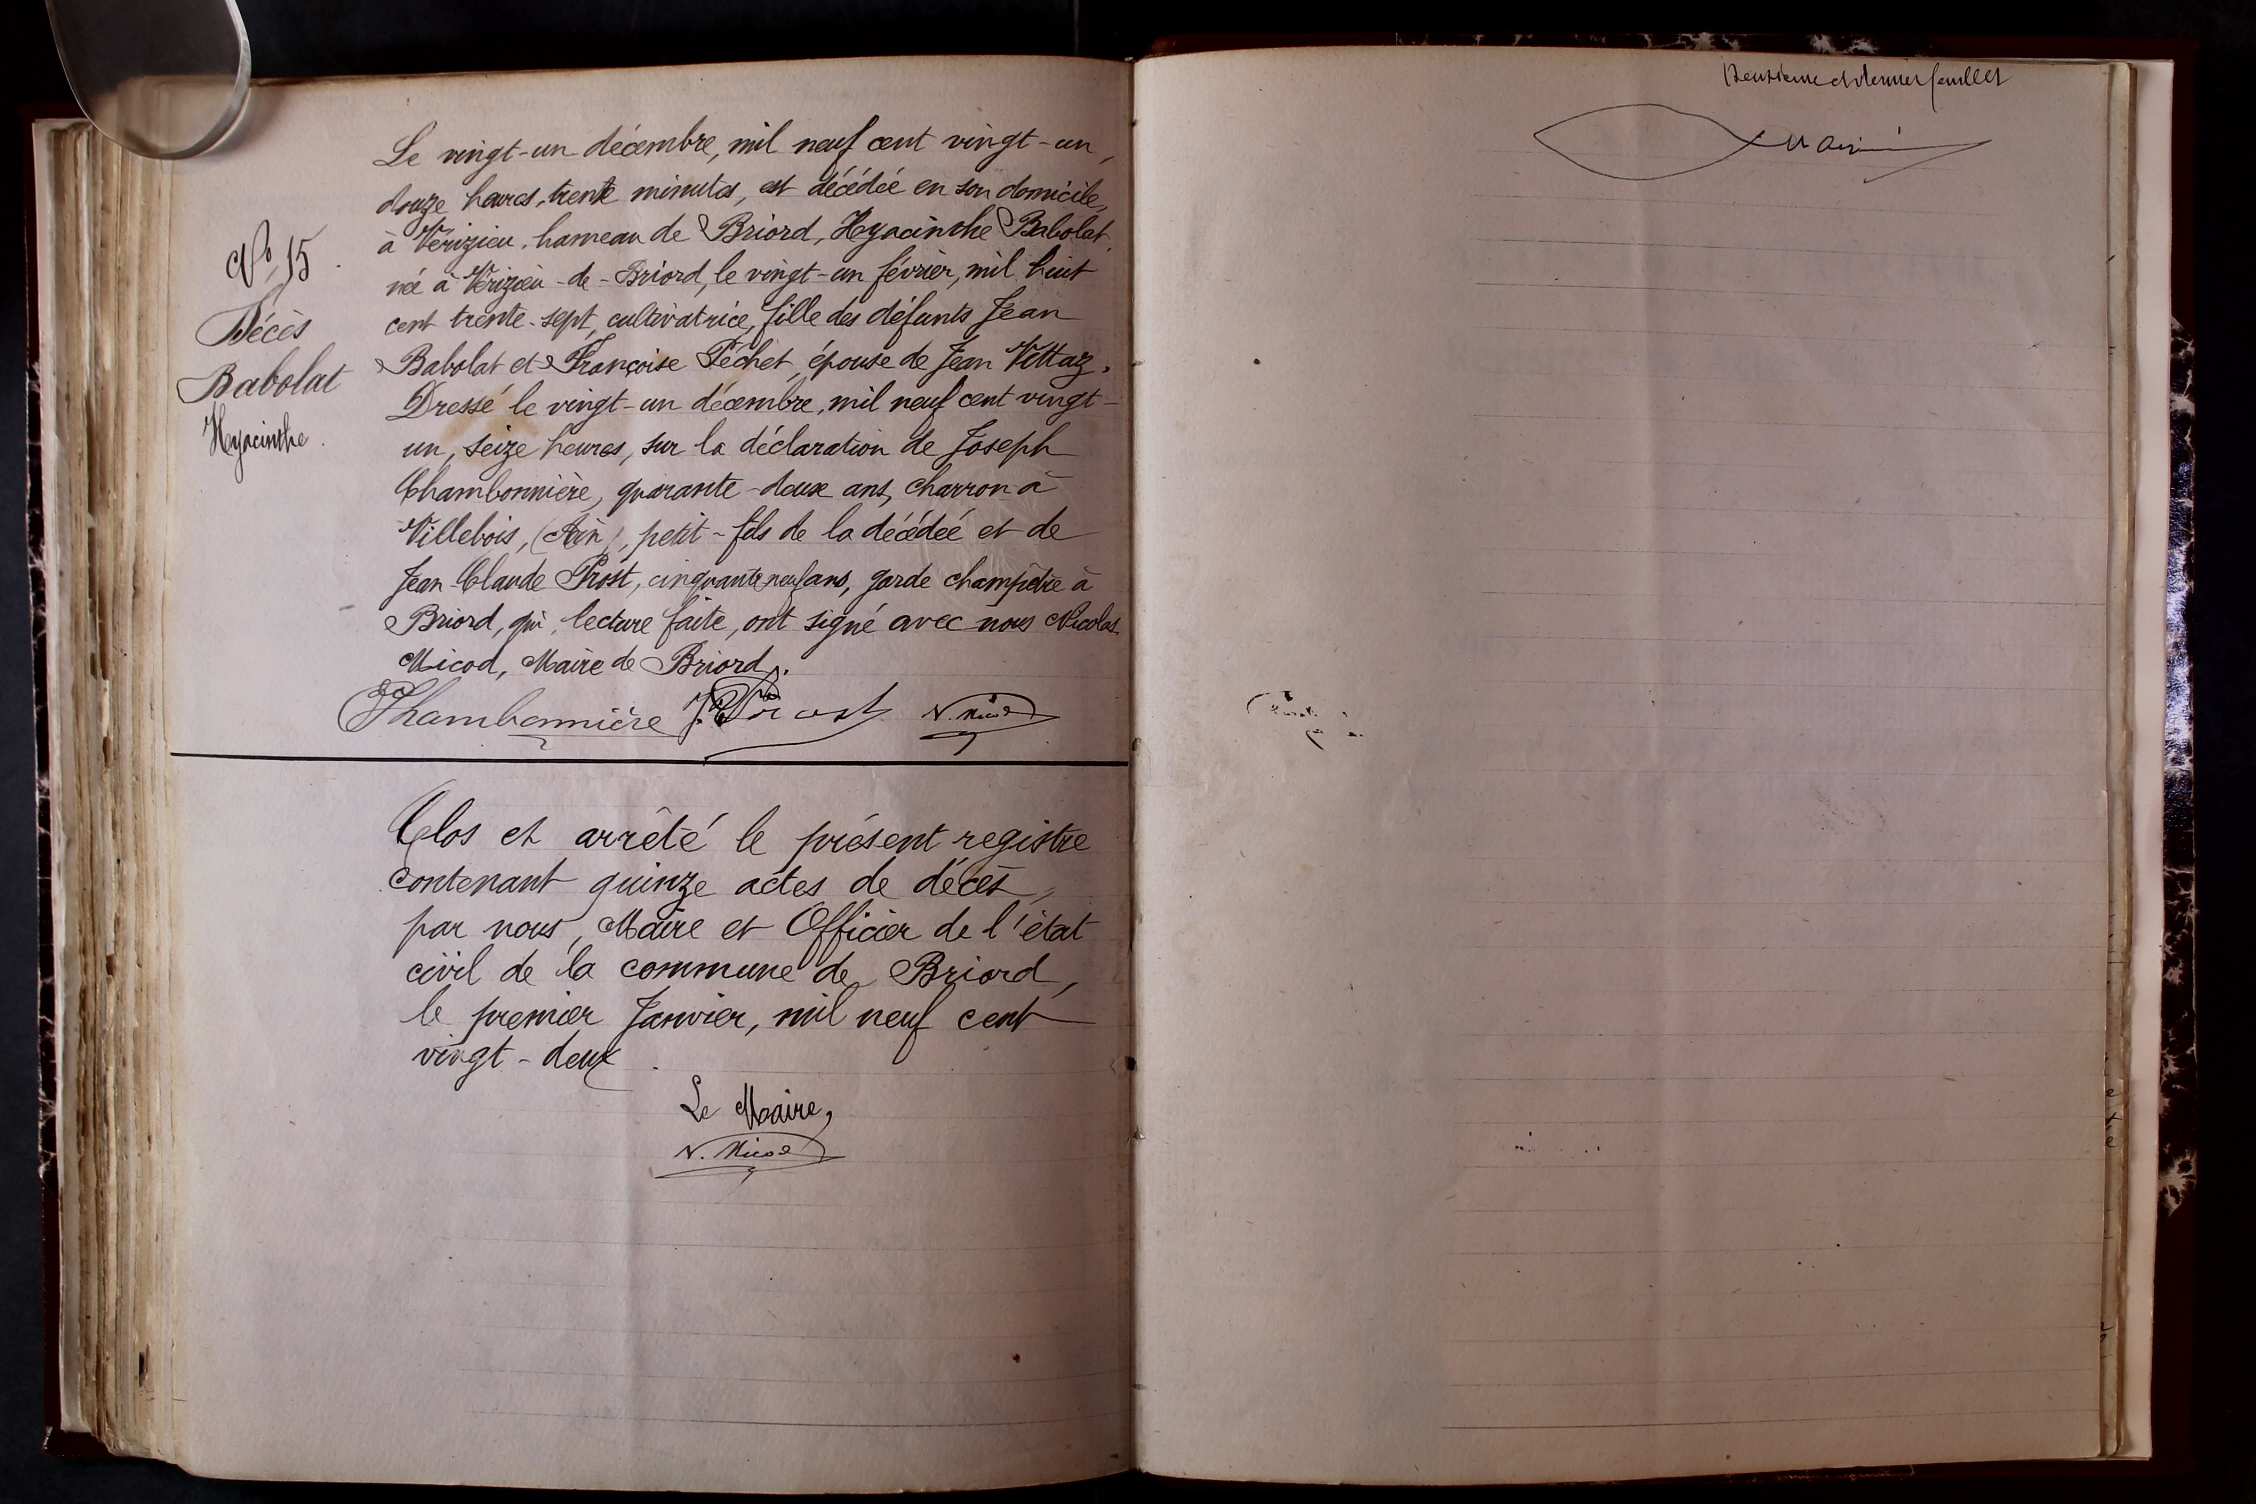 Le vingt-un décembre, mil neuf cent vingt-un,
douze heures, trente minutes, est décédée en son domicile,
à Vérizieu, hameau de Briord, Hyacinthe Babolat,
née à Vérizieu-de-Briord, le vingt-un février, mil huit
cent trente-sept, cultivatrice, fille des défunts Jean
Babolat et Françoise Péchet, épouse de Jean Vettaz.
Dressé le vingt-un décembre, mil neuf cent vingt-
un, seize heures, sur la déclaration de Joseph
Chambonnière, quarante-deux ans, charron à
Villebois, (Ain), petit-fils de la décédée et de
Jean-Claude Prost, cinquante neuf ans, garde champêtre à
Briord, qui, lecture faite, ont signé avec nous Nicolas
Micod, Maire de Briord.
Chambonnière J. C. Prost N. Micod
No 15.
Décès
Babolat
Hyacinthe.
Clos et arrêté le présent registre
contenant quinze actes de décès,
par nous, Maire et Officier de l'état
civil de la commune de Briord,
le premier Janvier, mil neuf cent
vingt-deux.
Le Maire,
N. Micod
et dernier feuillet